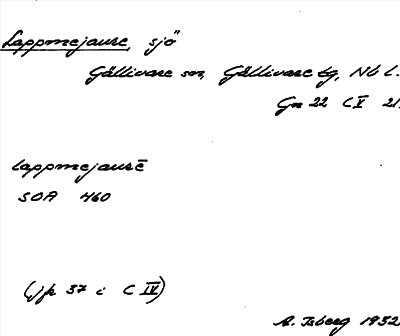 Lappmejaure, sjö
Gällivare sn, Gällivare tg, Nb l.
Gn 22 C V 21.
Lappmejaurē
SOA 460
(jfr 37 i C IV)
A. Isberg 1932